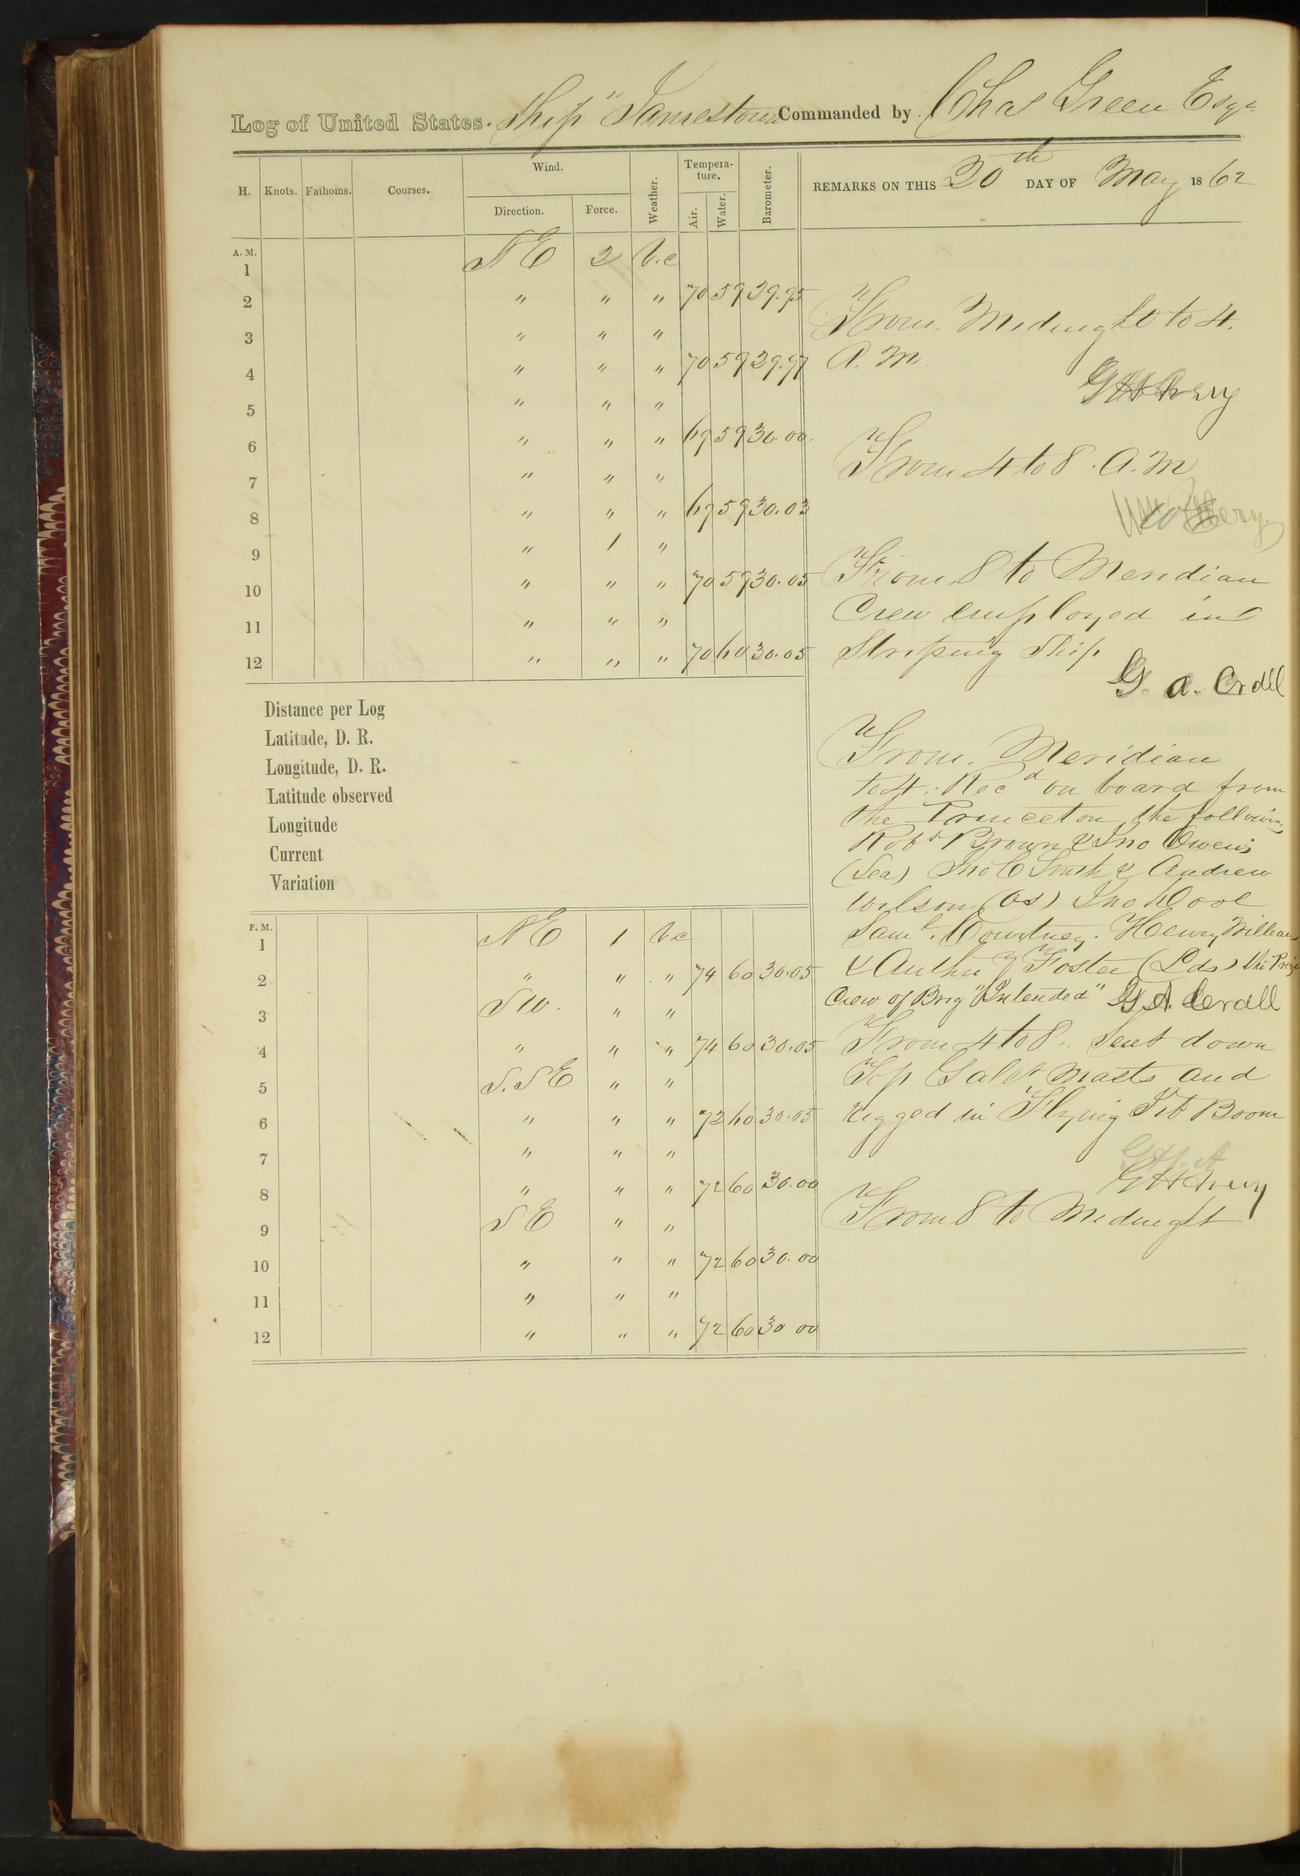 Log of United States. Ship "Jamestown Commanded by Chas Green Esqr
H. Knots. Fathoms. Courses. Wind. Direction. Force. Weather. Temperature. Air. Water. Barometer. REMARKS ON THIS 20th DAY OF May 1862
A. M.
1 NE 2 b.c
2 " " " 70 59 29.95
3 " " "
4 " " " 70 59 29.97
5 " " "
6 " " " 69 59 30.00
7 " " "
8 " " " 69 59 30.03
9 " 1 "
10 " " " 70 59 30.05
11 " " "
12 " " " 70 60 30.05
From Midnight to 4.
A. M.
G H Avery
From 4 to 8. A. M
From 8 to Meridian
Crew employed in
Striping Ship
G. A. Crall
Distance per Log
Latitude, D. R.
Longitude, D. R.
Latitude observed
Longitude
Current
Variation
From. Meridian
to 4: Recd on board from
the Princeton the following
Robt Brown & Jno Owens
(Sea) Jno C Smith & Andrew
Wilson (Os) Jno Dool
Saml. Courtney. Henry Williams
& Anthy Foster (Lds) the Prize
Crew of Brig "Intended" G A Crall
From 4 to 8. Sent down
Top Galt Masts and
rigged in Flying Jib Boom
G H A
G H Avery
From 8 to Midnight
P. M.
1 NE 1 b.c
2 " " " 74 60 30.05
3 SW. " "
4 " " " 74 60 30.05
5 S.SE " "
6 " " " 72 60 30.05
7 " " "
8 " " " 72 60 30.00
9 SE " "
10 " " " 72 60 30.00
11 " " "
12 " " " 72 60 30 00